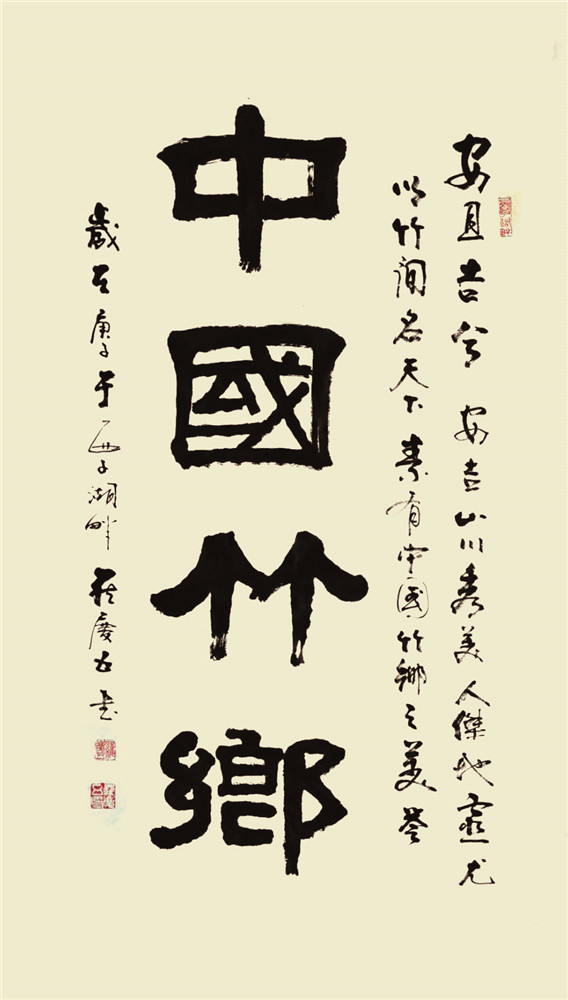 安且吉兮安吉山川秀美人傑地靈尤
以竹闻名天下素有中国竹鄉之美誉
中國竹鄉
歲在庚子于西子湖畔慶书